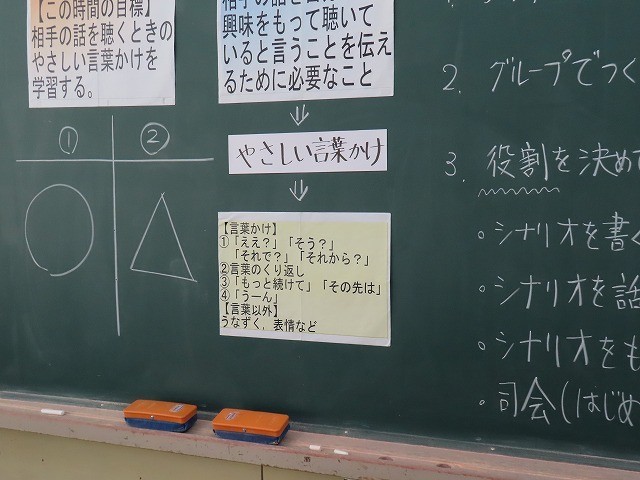 【この時間の目標】
相手の話を聴くときの
やさしい言葉かけを
学習する。
興味をもって聴いて
いると言うことを伝え
るために必要なこと
⇓
やさしい言葉かけ
⇓
【言葉かけ】
①「ええ?」「そう?」
「それで?」「それから?」
②言葉のくり返し
③「もっと続けて」「その先は」
④「うーん」
【言葉以外】
うなずく,表情など
① ②
2. グループでつく
3. 役割を決めて
・シナリオを書く
・シナリオを話
・シナリオをも
・司会(はじめ